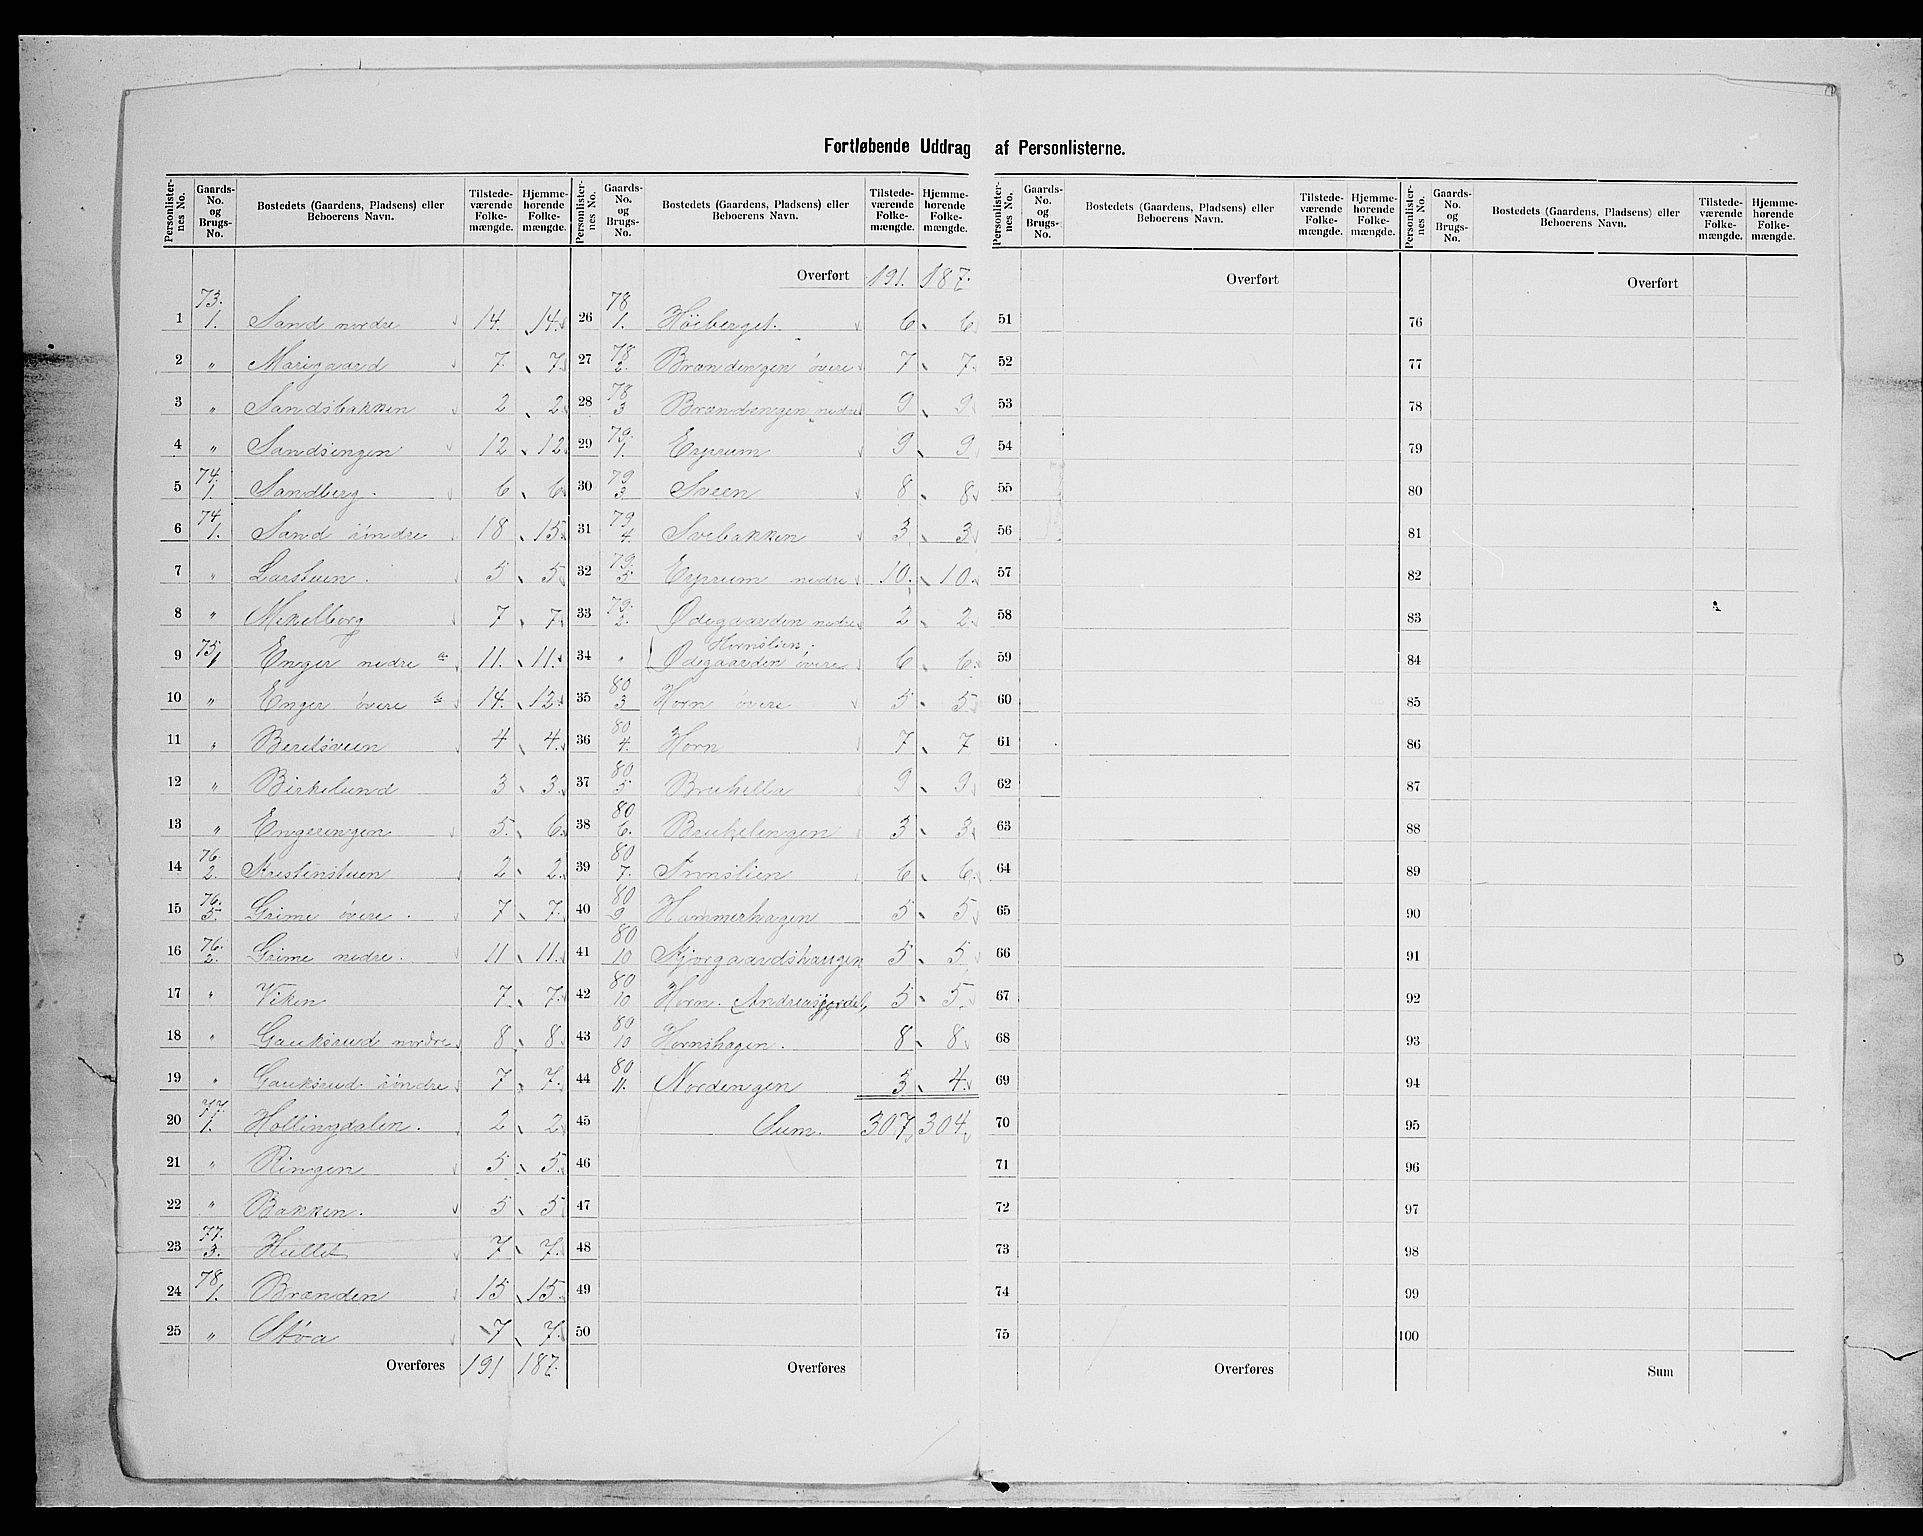 Fortløbende Uddrag af Personlisterne.
Personlister-nes No. | Gaards-No. og Brugs-No. | Bostedets (Gaardens, Pladsens) eller Beboerens Navn. | Tilstede-værende Folke-mængde. | Hjemme-hørende Folke-mængde.
1 73. 1. Sand nordre 14. 14.
2 " Marigaard 7. 7.
3 " Sandsbakken 2 2
4 " Sandsengen 12 12
5 74. 1. Sandberg. 6 6
6 74. 1. Sand söndre 18 15
7 " Larstuen. 5 5
8 " Mekelborg 7 7.
9 75. 1 Enger nedre 11. 11.
10 " Enger övere 14. 12.
11 " Beretsveen 4 4.
12 " Birkelund 3 3.
13 " Engerengen 5. 6.
14 76. 2. Kristenstuen 2 2.
15 76. 5. Grime övere. 7 7.
16 76. 2. Grime nedre. 11 11.
17 " Viken 7. 7.
18 " Gauksrud nordre 8 8.
19 " Gauksrud söndre 7 7.
20 77. 1. Hollingdalen. 2 2
21 " Ringen 5 5.
22 " Bakken. 5 5
23 77. 3. Hullet 7 7.
24 78. 1. Brænden 15 15.
25 " Støa 7 7.
Overføres 191 187.
Personlister-nes No. | Gaards-No. og Brugs-No. | Bostedets (Gaardens, Pladsens) eller Beboerens Navn. | Tilstede-værende Folke-mængde. | Hjemme-hørende Folke-mængde.
Overført 191. 187.
26 78 1. Höiberget. 6 6
27 78 2. Brændengen övere 7 7.
28 78 3 Brændengen nedre 9 9.
29 79. 1. Erprum 9 9.
30 79 3 Sveen 8 8
31 79 4 Svebakken 3 3
32 79. 5 Erprum nedre 10. 10.
33 79. 2. Ødegaarden nedre 2 2.
Hornslien.
34 " Ødegaarden övere 6 6.
35 80 3 Horn övere 5 5
36 80 4. Horn 7 7
37 80 5 Brukella 9 9
38 80 6. Brukelengen 3 3
39 80 7. Tronslien 6 6.
40 80 9 Hammerhagen 5 5
41 80 10 Kjorgaardshaugen 5 5.
42 80 10 Horn. 5 5.
43 80 10 Hornshagen. 8 8
44 80 11. Nordengen 3 4.
45 Sum. 307 304.
46
47
48
49
50
Overføres
Personlister-nes No. | Gaards-No. og Brugs-No. | Bostedets (Gaardens, Pladsens) eller Beboerens Navn. | Tilstede-værende Folke-mængde. | Hjemme-hørende Folke-mængde.
Overført
51
52
53
54
55
56
57
58
59
60
61
62
63
64
65
66
67
68
69
70
71
72
73
74
75
Overføres
Personlister-nes No. | Gaards-No. og Brugs-No. | Bostedets (Gaardens, Pladsens) eller Beboerens Navn. | Tilstede-værende Folke-mængde. | Hjemme-hørende Folke-mængde.
Overført
76
77
78
79
80
81
82
83
84
85
86
87
88
89
90
91
92
93
94
95
96
97
98
99
100
Sum